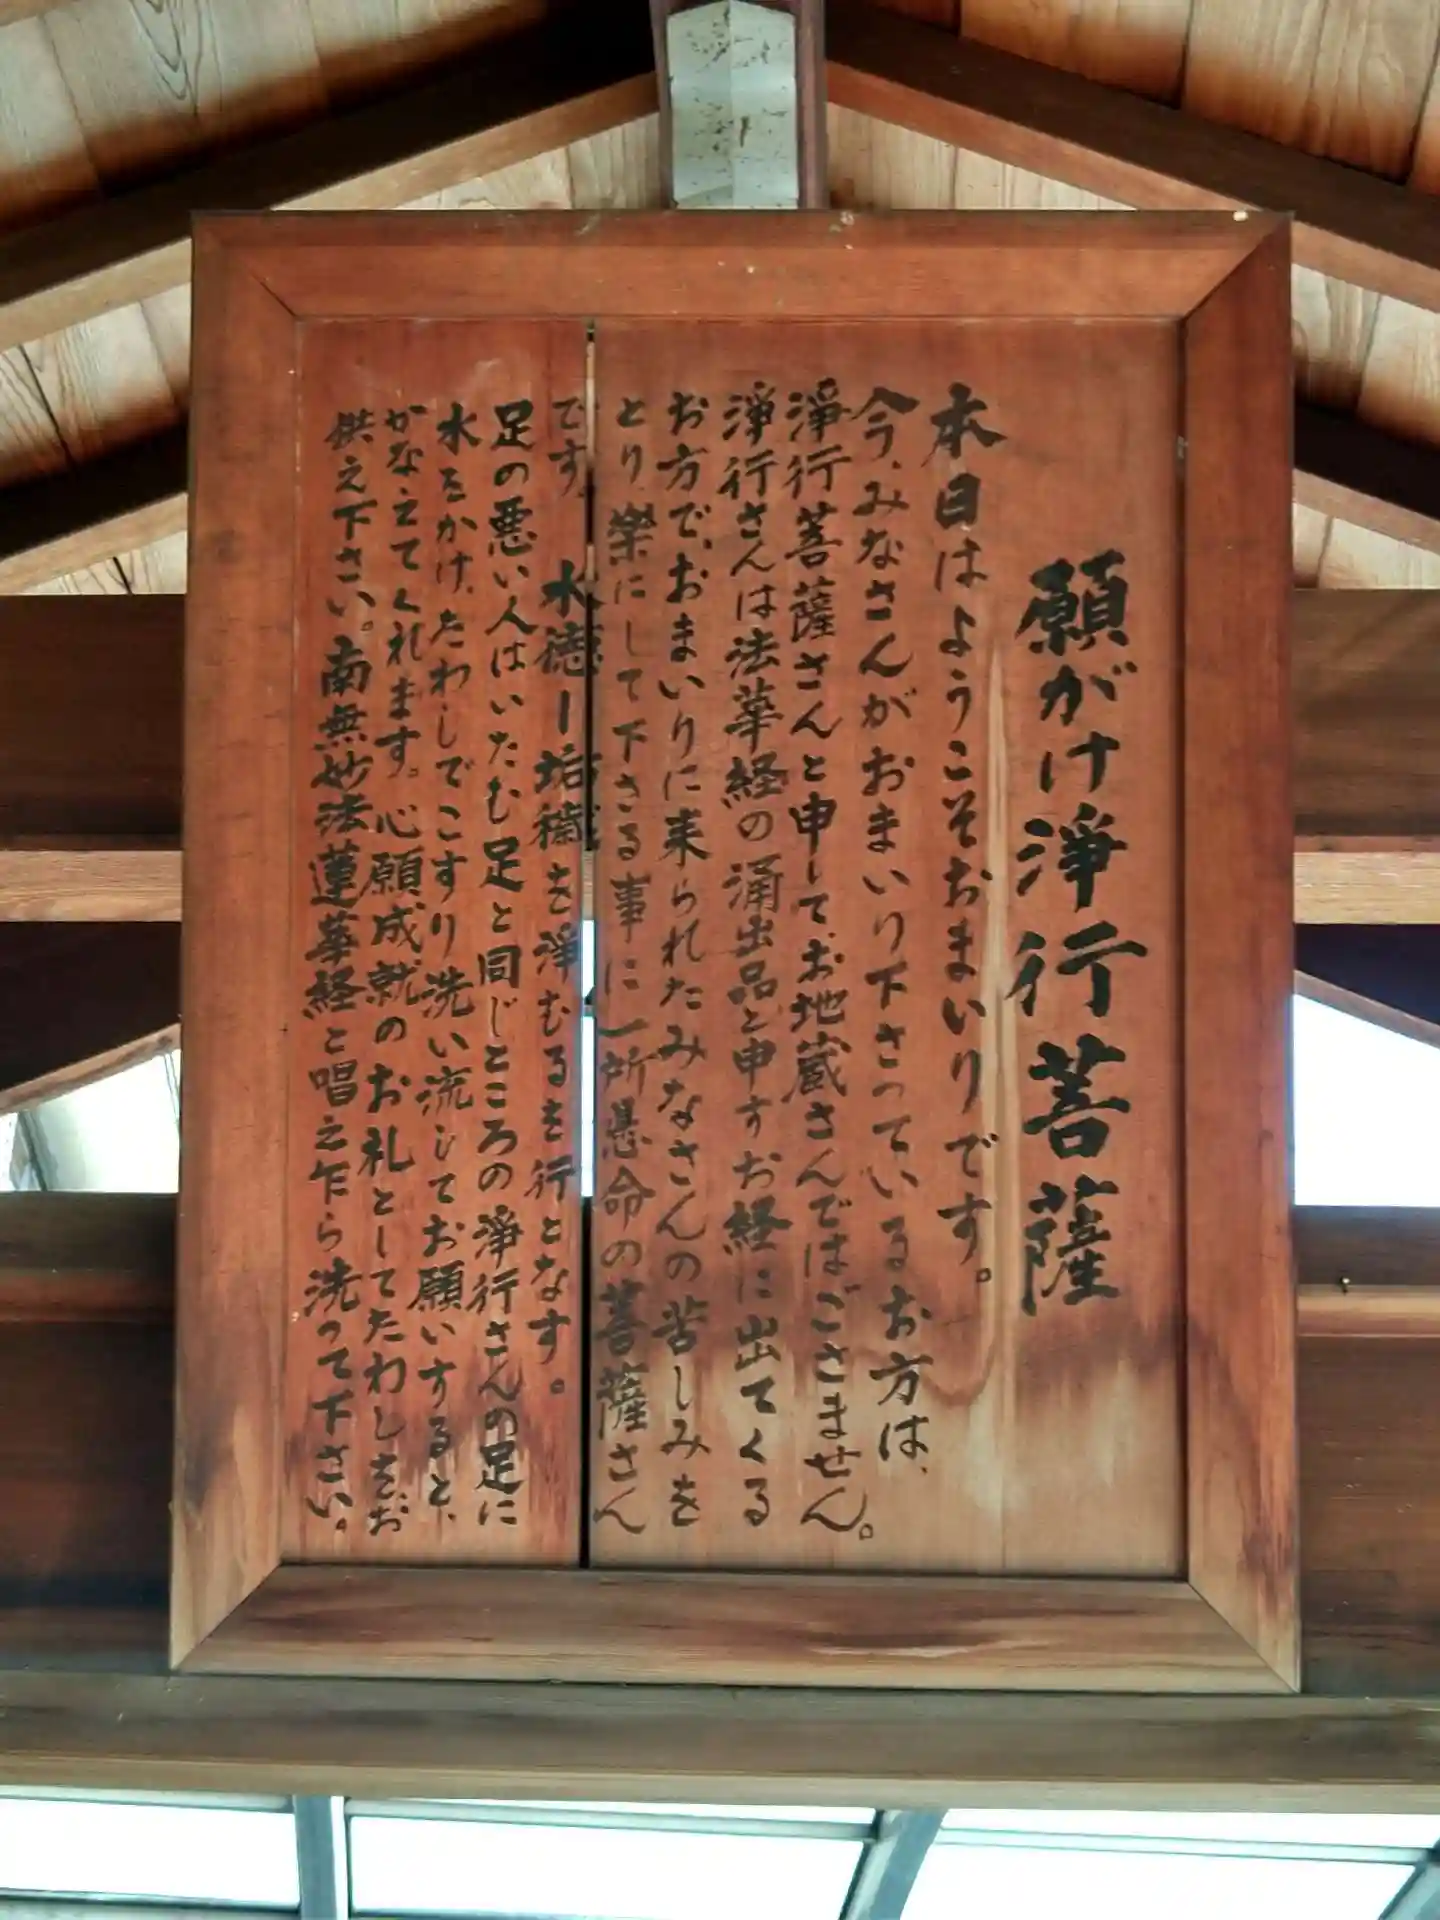 願がけ淨行菩薩
本日はようこそおまいりです。
今、みなさんがおまいり下さっているお方は、
淨行菩薩さんと申して、お地蔵さんではござません。
淨行さんは法華経の涌出品と申すお経に出てくる
お方で、おまいりに来られたみなさんの苦しみを
とり、楽にして下さる事に一所懸命の菩薩さん
です。 水徳ー垢穢を淨むるを行となす。
足の悪い人はいたむ足と同じところの淨行さんの足に
水をかけ、たわしでこすり洗い流してお願いすると、
かなえてくれます。心願成就のお礼としてたわしをお
供え下さい。南無妙法蓮華経と唱え乍ら洗って下さい。